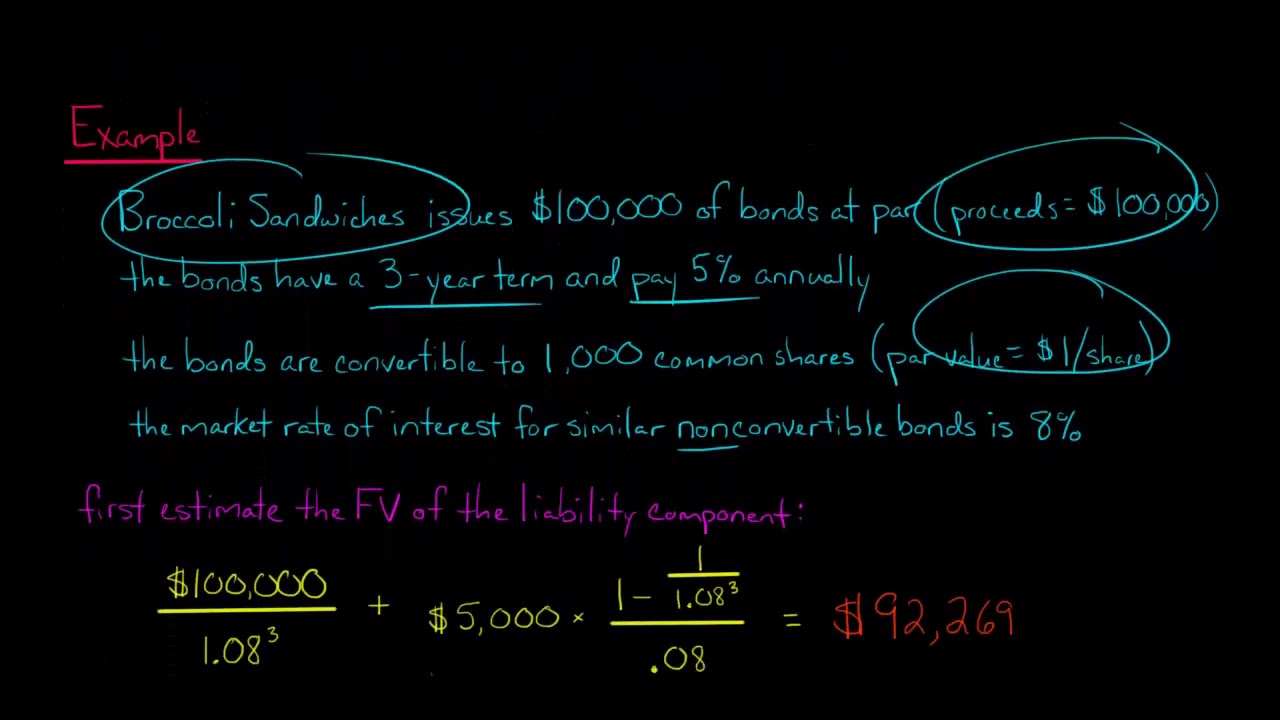 Example
Broccoli Sandwiches issues $100,000 of bonds at par (proceeds = $100,000)
the bonds have a 3-year term and pay 5% annually
the bonds are convertible to 1,000 common shares (par value = $1/share)
the market rate of interest for similar nonconvertible bonds is 8%
first estimate the FV of the liability component:
$100,000 / 1.08³ + $5,000 × (1 - 1/1.08³) / .08 = $92,269